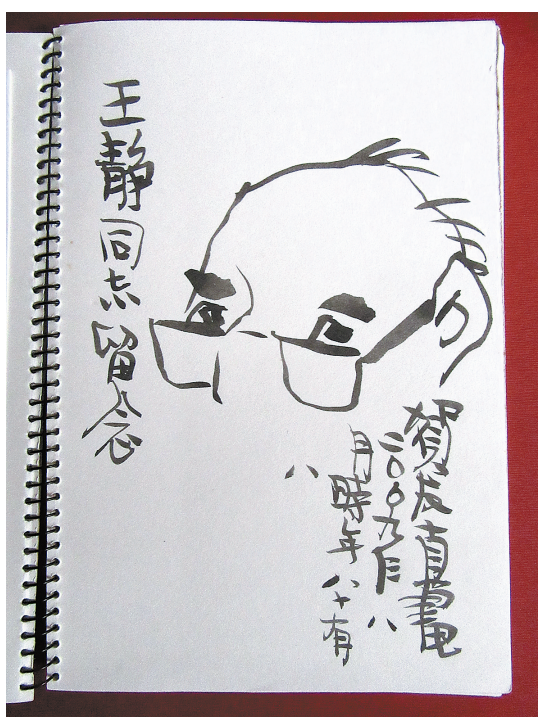 王静同志留念
賀友直畫
二〇〇九年八
月時年八十有
八